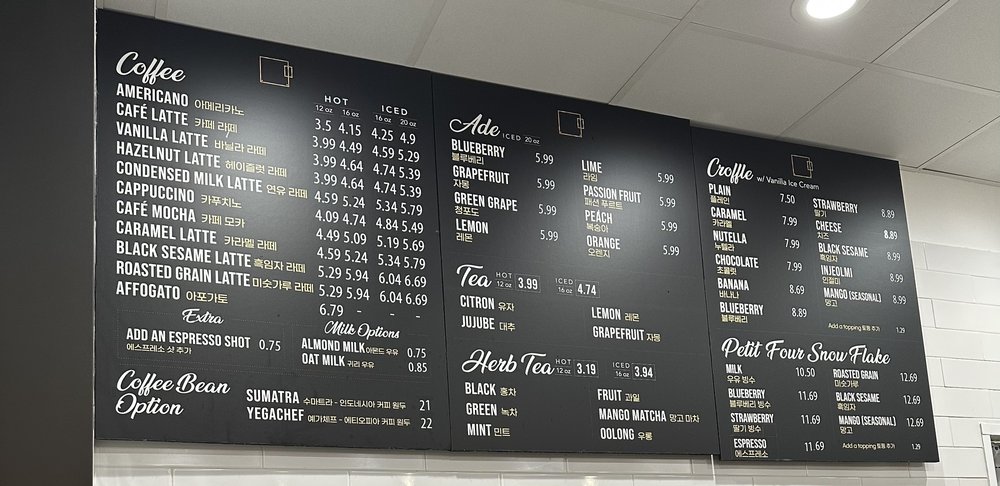 Coffee
HOT ICED
12 oz 16 oz 16 oz 20 oz
AMERICANO 아메리카노 3.5 4.15 4.25 4.9
CAFÉ LATTE 카페 라떼 3.99 4.49 4.59 5.29
VANILLA LATTE 바닐라 라떼 3.99 4.64 4.74 5.39
HAZELNUT LATTE 헤이즐럿 라떼 3.99 4.64 4.74 5.39
CONDENSED MILK LATTE 연유 라떼 4.59 5.24 5.34 5.79
CAPPUCCINO 카푸치노 4.09 4.74 4.84 5.49
CAFÉ MOCHA 카페 모카 4.49 5.09 5.19 5.69
CARAMEL LATTE 카라멜 라떼 4.59 5.24 5.34 5.79
BLACK SESAME LATTE 흑임자 라떼 5.29 5.94 6.04 6.69
ROASTED GRAIN LATTE 미숫가루 라떼 5.29 5.94 6.04 6.69
AFFOGATO 아포가토 6.79 - - -
Extra
ADD AN ESPRESSO SHOT 0.75
에스프레소 샷 추가
Milk Options
ALMOND MILK 아몬드 우유 0.75
OAT MILK 귀리 우유 0.85
Coffee Bean
Option
SUMATRA 수마트라 - 인도네시아 커피 원두 21
YEGACHEF 예가체프 - 에티오피아 커피 원두 22
Ade ICED 20 oz
BLUEBERRY 5.99
블루베리
GRAPEFRUIT 5.99
자몽
GREEN GRAPE 5.99
청포도
LEMON 5.99
레몬
LIME 5.99
라임
PASSION FRUIT 5.99
패션 푸르트
PEACH 5.99
복숭아
ORANGE 5.99
오렌지
Tea HOT 12 oz 3.99 ICED 16 oz 4.74
CITRON 유자
JUJUBE 대추
LEMON 레몬
GRAPEFRUIT 자몽
Herb Tea HOT 12 oz 3.19 ICED 16 oz 3.94
BLACK 홍차
GREEN 녹차
MINT 민트
FRUIT 과일
MANGO MATCHA 망고 마차
OOLONG 우롱
Croffle w/ Vanilla Ice Cream
PLAIN 7.50
플레인
CARAMEL 7.99
카라멜
NUTELLA 7.99
누텔라
CHOCOLATE 7.99
초콜릿
BANANA 8.69
바나나
BLUEBERRY 8.89
블루베리
STRAWBERRY 8.89
딸기
CHEESE 8.89
치즈
BLACK SESAME 8.99
흑임자
INJEOLMI 8.99
인절미
MANGO (SEASONAL) 8.99
망고
Add a topping 토핑 추가 1.29
Petit Four Snow Flake
MILK 10.50
우유 빙수
BLUEBERRY 11.69
블루베리 빙수
STRAWBERRY 11.69
딸기 빙수
ESPRESSO 11.69
에스프레소
ROASTED GRAIN 12.69
미숫가루
BLACK SESAME 12.69
흑임자
MANGO (SEASONAL) 12.69
망고
Add a topping 토핑 추가 1.29